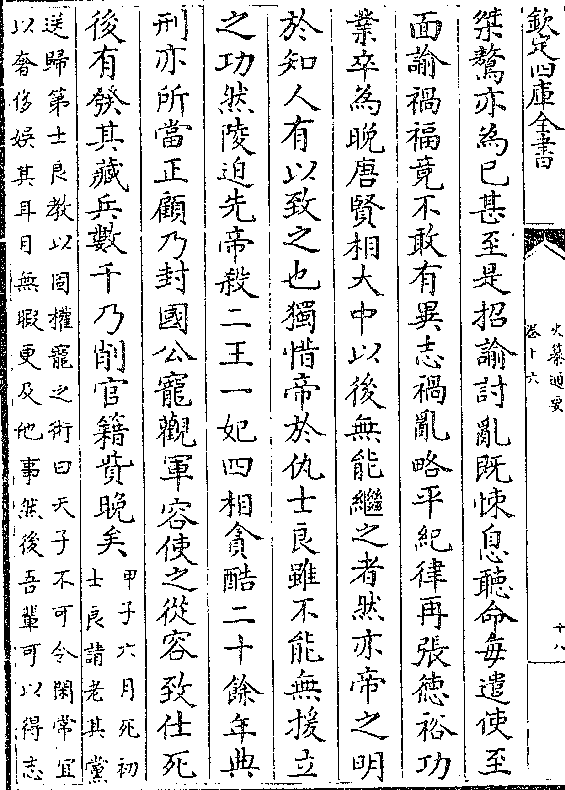 欽定四庫全書
史纂通要
卷十六
十八
桀驁亦為已甚至是招諭討亂既悚息聽命每遣使至
面諭禍福竟不敢有異志禍亂略平紀律再張徳裕功
業卒為晩唐賢相大中以後無能繼之者然亦帝之明
於知人有以致之也獨惜帝於仇士良雖不能無援立
之功然陵迫先帝殺二王一妃四相貪酷二十餘年典
刑亦所當正顧乃封國公寵觀軍容使之從容致仕死
後有發其藏兵數千乃削官籍貲晚矣
甲子六月死初
士良請老其黨
送歸第士良教以固權寵之術曰天子不可令閑常宜
以奢侈娛其耳目無暇更及他事然後吾輩可以得志